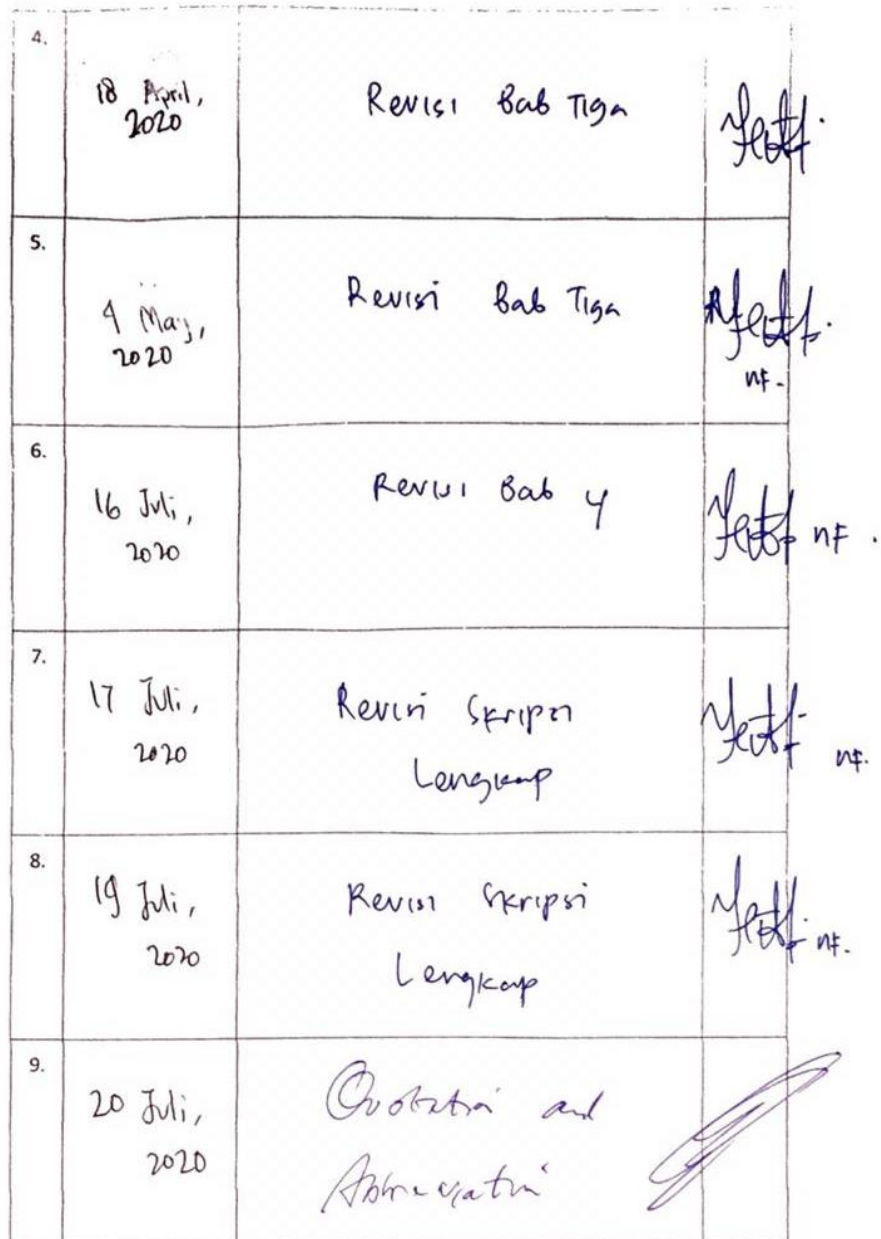 4.
18 April,
2020
Revisi Bab Tiga
5.
4 May,
2020
Revisi Bab Tiga
nf.
6.
16 Juli,
2020
Revisi Bab 4
nf.
7.
17 Juli,
2020
Revisi Skripsi
Lengkap
nf.
8.
19 Juli,
2020
Revisi Skripsi
Lengkap
nf.
9.
20 Juli,
2020
Quotation and
Abbreviation